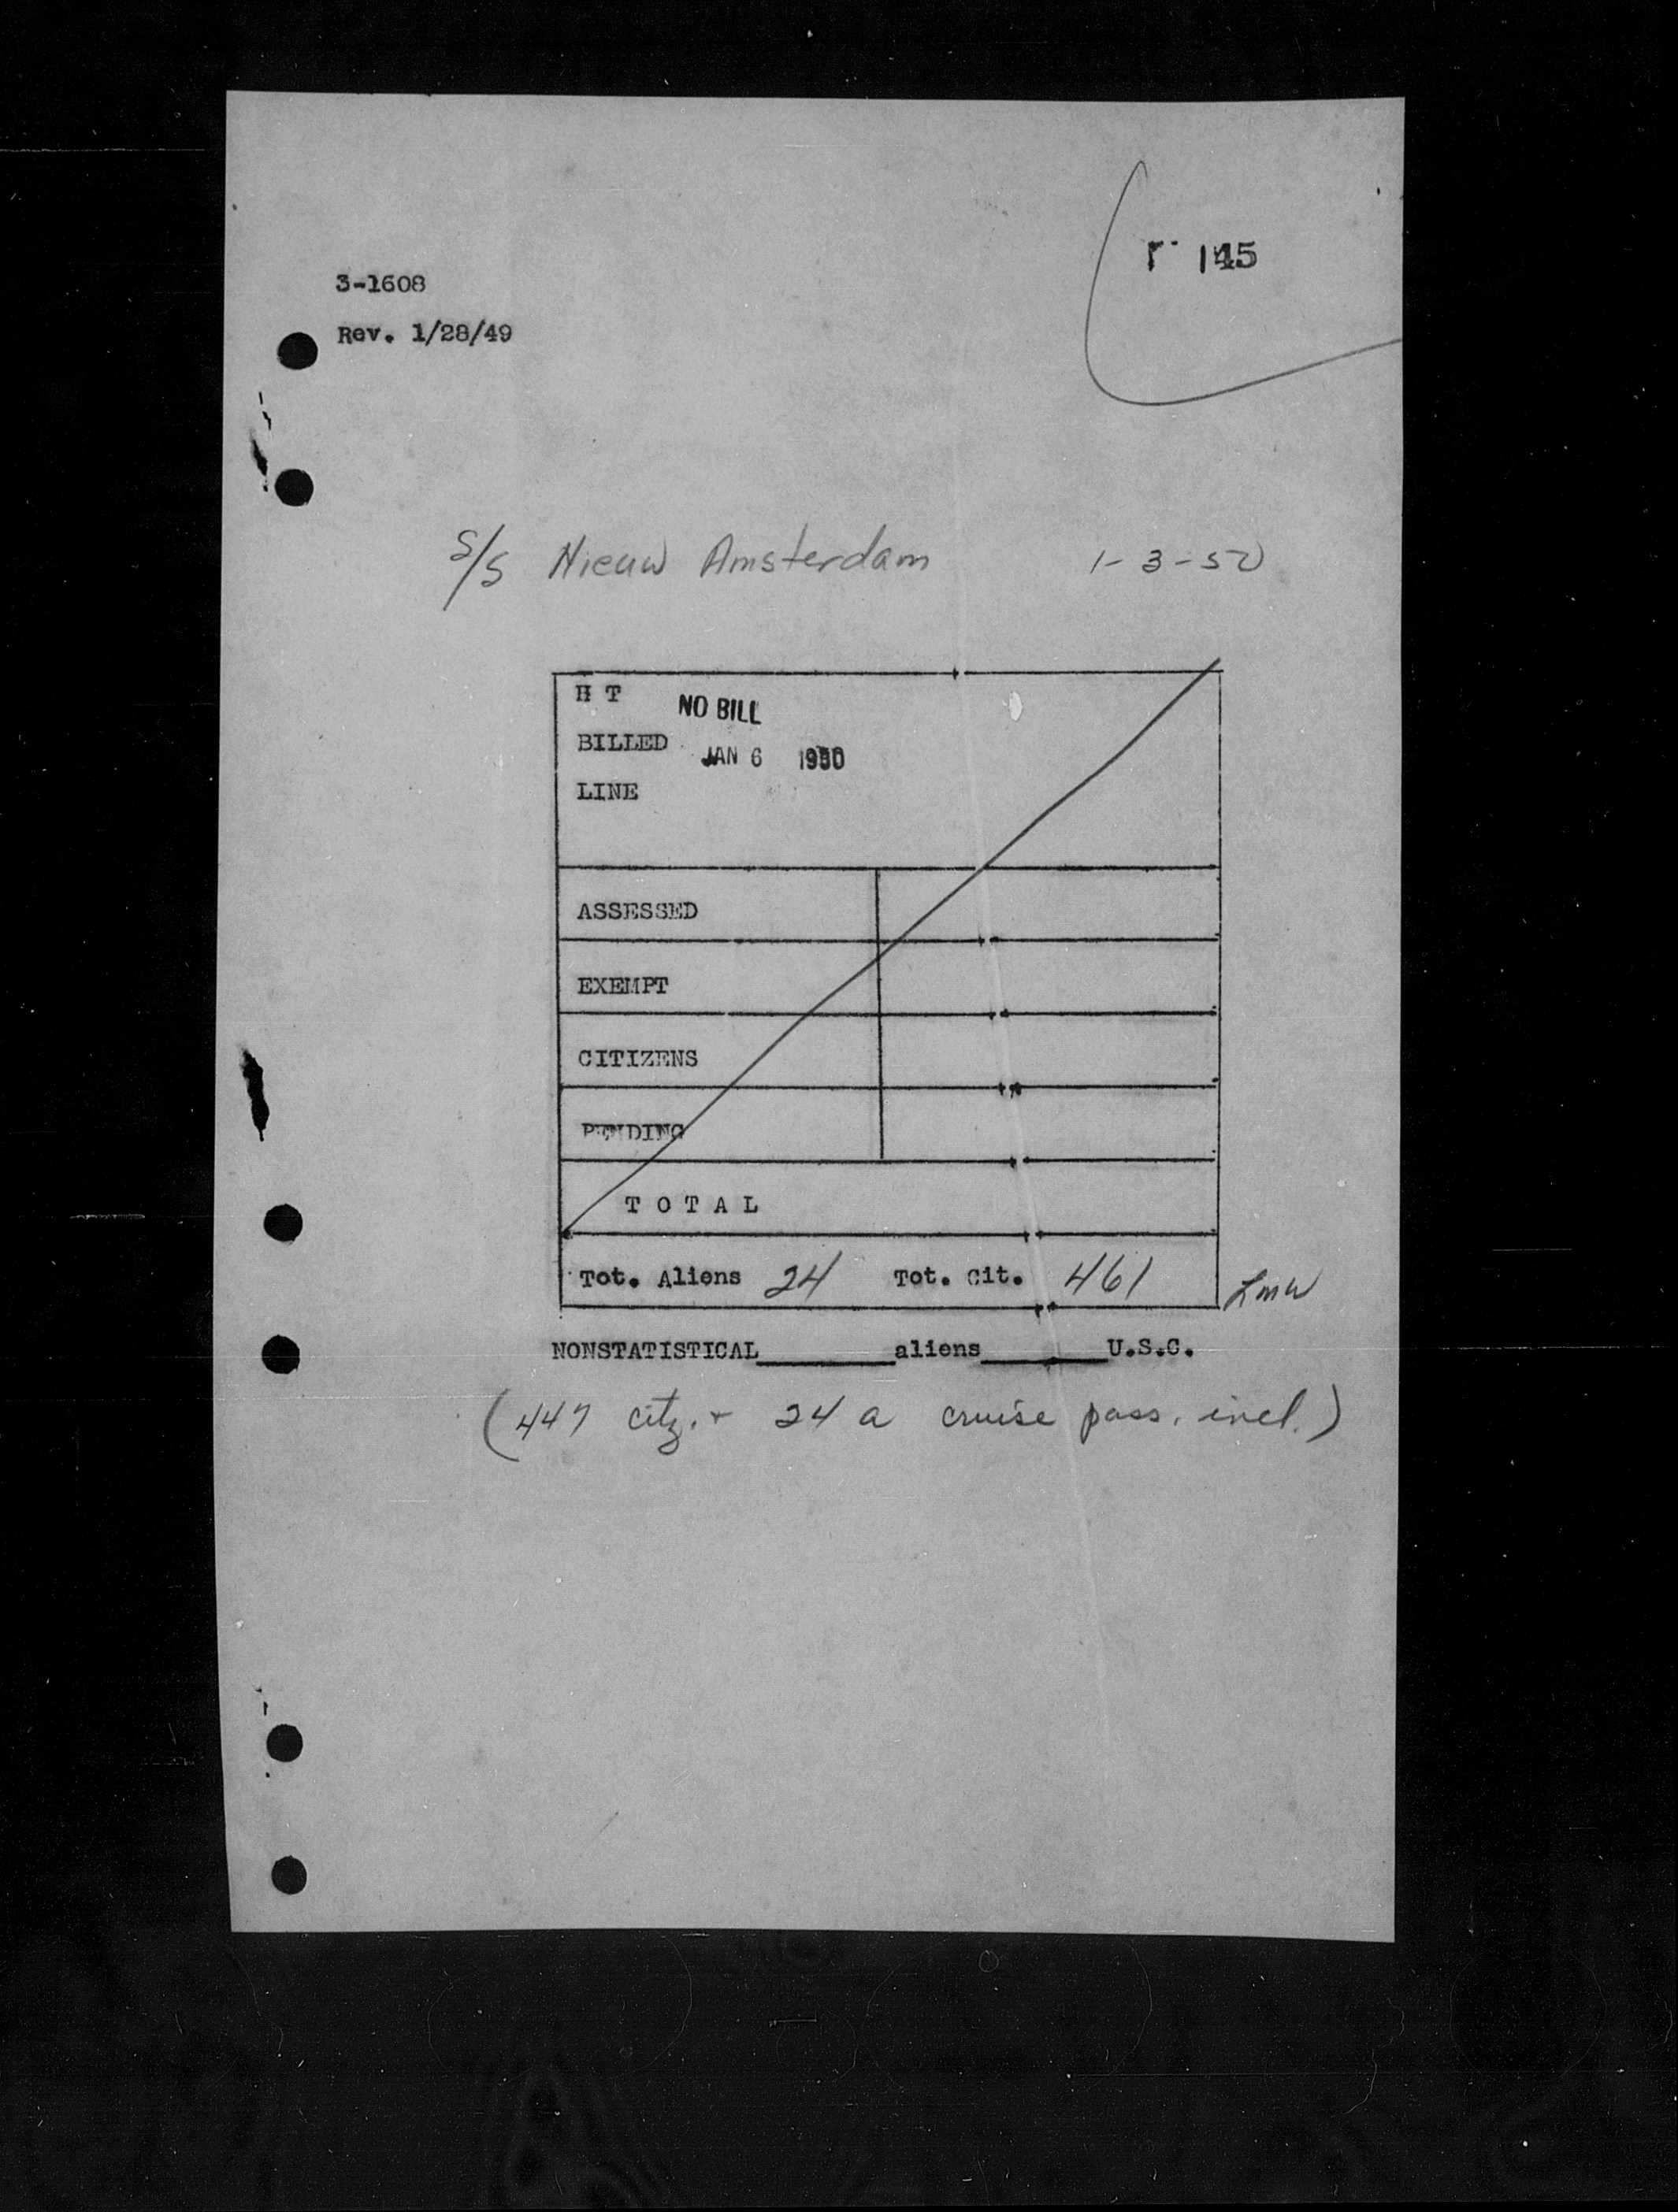 145
3-1608
Rev. 1/28/49
S/S Nieuw Amsterdam 1-3-50
H T NO BILL
BILLED JAN 6 1950
LINE
ASSESSED
EXEMPT
CITIZENS
PENDING
T O T A L
Tot. Aliens 24 Tot. Cit. 461 LMW
NONSTATISTICAL______aliens______U.S.C.
(447 citz. + 24 a cruise pass. incl.)